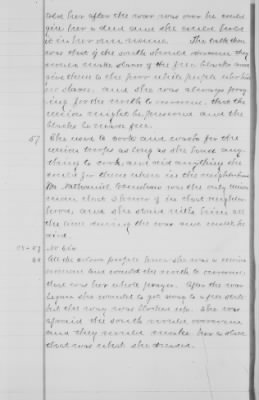 told her after the war was over he would
give her a deed and she could hold
it in her own name. The talk then
was that if the south should overcome they
would make slaves of the free blacks and
give them to the poor white people who had
no slaves, and she was always pray
ing for the north to overcome, that the
union might be preserved and the
blacks be made free.
57 She used to cook and wash for the
union troops as long as she had any
thing to cook, and did anything she
could for them when in the neighborhood
Mr. Nathaniel was the only union
man that I knew of in that neighbor
hood, and she stood with him all
the time during the war and
and
No Sir
All the colored people knew she was a union
woman and wanted the north to overcome,
that was her whole prayer. After the war
began she wanted to get away to a free state
but the way was blocked up. She was
afraid the south would overcome
and they would make her a slave
that was what she dreaded.